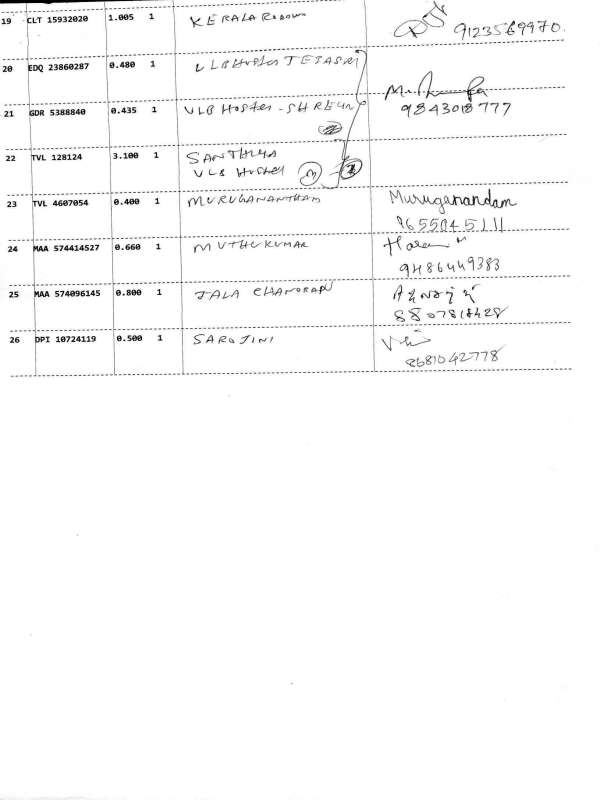 19 CLT 15932020 1.005 1 KERALA
9123569970.
20 EDQ 23860287 0.480 1 VLB Hostel TEJASRI
21 GDR 5388840 0.435 1 VLB Hostel - SHREYA
9843018777
22 TVL 128124 3.100 1 SANTHIYA
VLB Hostel 3
23 TVL 4607054 0.400 1 MURUGANANTHAM Muruganandam
9655045111
24 MAA 574414527 0.660 1 MUTHUKUMAR
9486449383
25 MAA 574096145 0.800 1 JALA CHANDRAN
8807818428
26 DPI 10724119 0.500 1 SAROJINI
8681042778